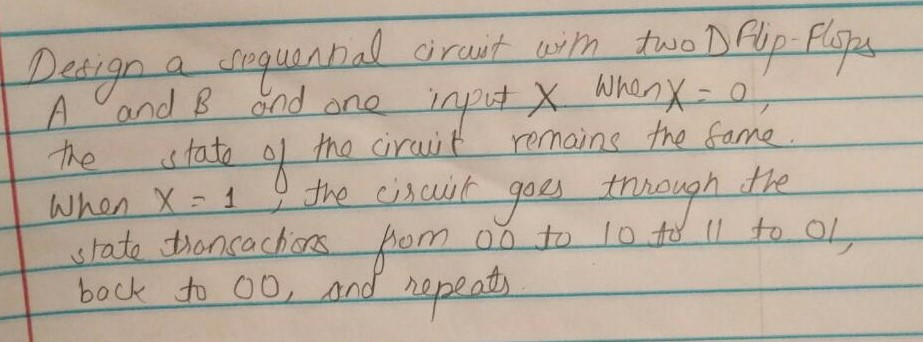 Design a sequential circuit with two D Flip-Flops
A and B and one input X. When X = 0,
the state of the circuit remains the same.
When X = 1, the circuit goes through the
state transactions from 00 to 10 to 11 to 01,
back to 00, and repeats.